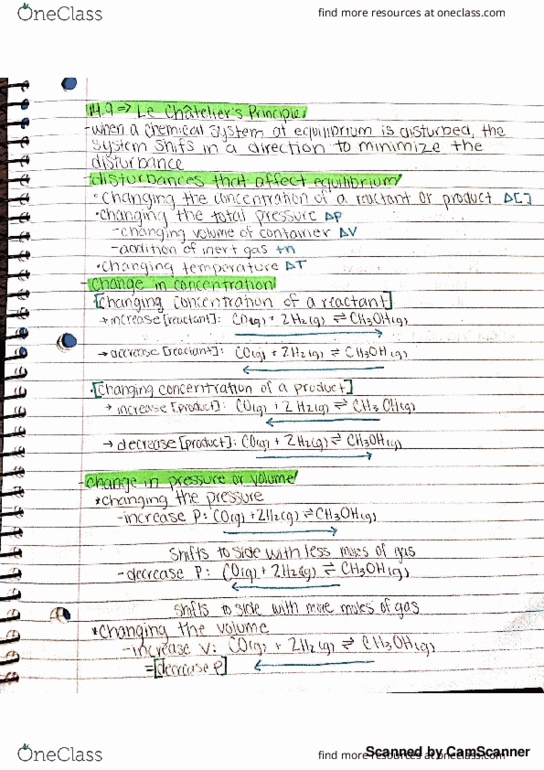 OneClass
find more resources at oneclass.com
14.9 => Le Châtelier's Principle
-when a chemical system at equilibrium is disturbed, the
system shifts in a direction to minimize the
disturbance
disturbances that affect equilibrium
•changing the concentration of a reactant or product Δ[ ]
•changing the total pressure ΔP
-changing volume of container ΔV
-addition of inert gas +n
•changing temperature ΔT
-change in concentration
[changing concentration of a reactant]
→ increase [reactant]: CO(g) + 2H2(g) ⇌ CH3OH(g)
→ decrease [reactant]: CO(g) + 2H2(g) ⇌ CH3OH(g)
[changing concentration of a product]
→ increase [product]: CO(g) + 2H2(g) ⇌ CH3OH(g)
→ decrease [product]: CO(g) + 2H2(g) ⇌ CH3OH(g)
-change in pressure or volume
*changing the pressure
-increase P: CO(g) + 2H2(g) ⇌ CH3OH(g)
shifts to side with less moles of gas
-decrease P: CO(g) + 2H2(g) ⇌ CH3OH(g)
shifts to side with more moles of gas
*changing the volume
-increase V: CO(g) + 2H2(g) ⇌ CH3OH(g)
=[decrease P]
OneClass
find more resources at oneclass.com
Scanned by CamScanner